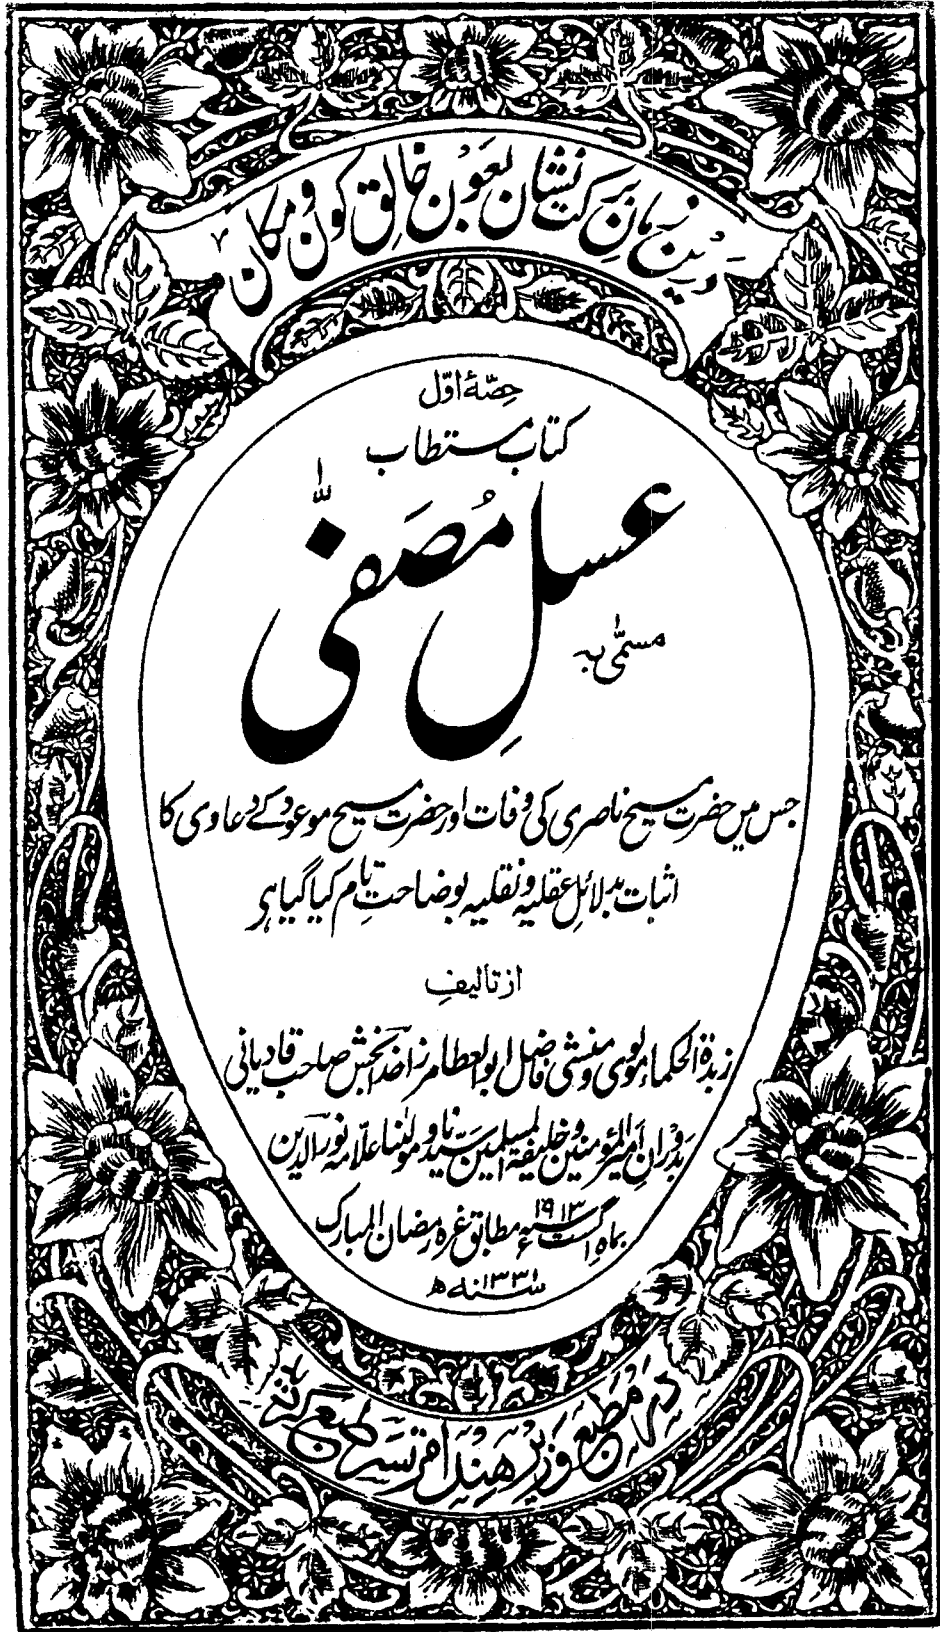 درین زمان برکت نشان بعون خالق کون و مکان
حصّۂ اوّل
کتاب مستطاب
عسلِ مُصَفّٰی
مسمّٰی بہ
جس میں حضرت مسیح ناصری کی وفات اور حضرت مسیح موعود کے دعاوی کا
اثبات بدلائلِ عقلیہ و نقلیہ بوضاحتِ تام کیا گیا ہی
از تالیفِ
زبدۃ الحکماء مولوی و منشی فاضل ابوالعطا مرزا خدا بخش صاحب قادیانی
بدورانِ امیر المؤمنین و خلیفۃ المسلمین سیدنا و مولٰنا علّامہ نور الدین
بماہ اگست ۱۹۱۳ء مطابق غرہ رمضان المبارک
سنہ ۱۳۳۱ھ
در مطبع وزیر ہند امرتسر طبع گردید